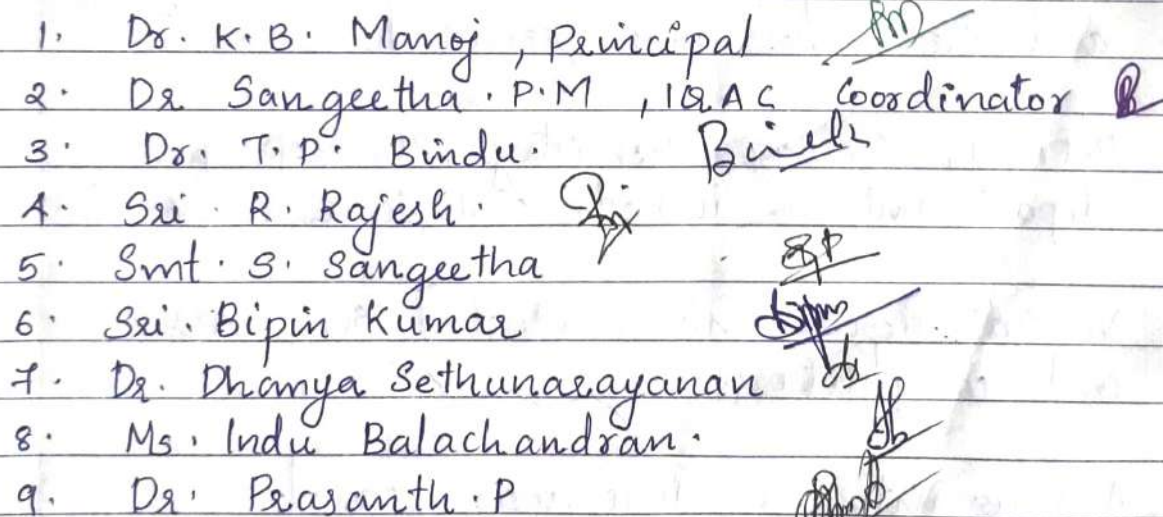 1. Dr. K. B. Manoj, Principal
2. Dr Sangeetha. P. M, IQAC Coordinator
3. Dr. T. P. Bindu. Bindu
4. Sri. R. Rajesh.
5. Smt. S. Sangeetha
6. Sri. Bipin Kumar
7. Dr. Dhanya Sethunarayanan
8. Ms. Indu Balachandran.
9. Dr. Prasanth. P